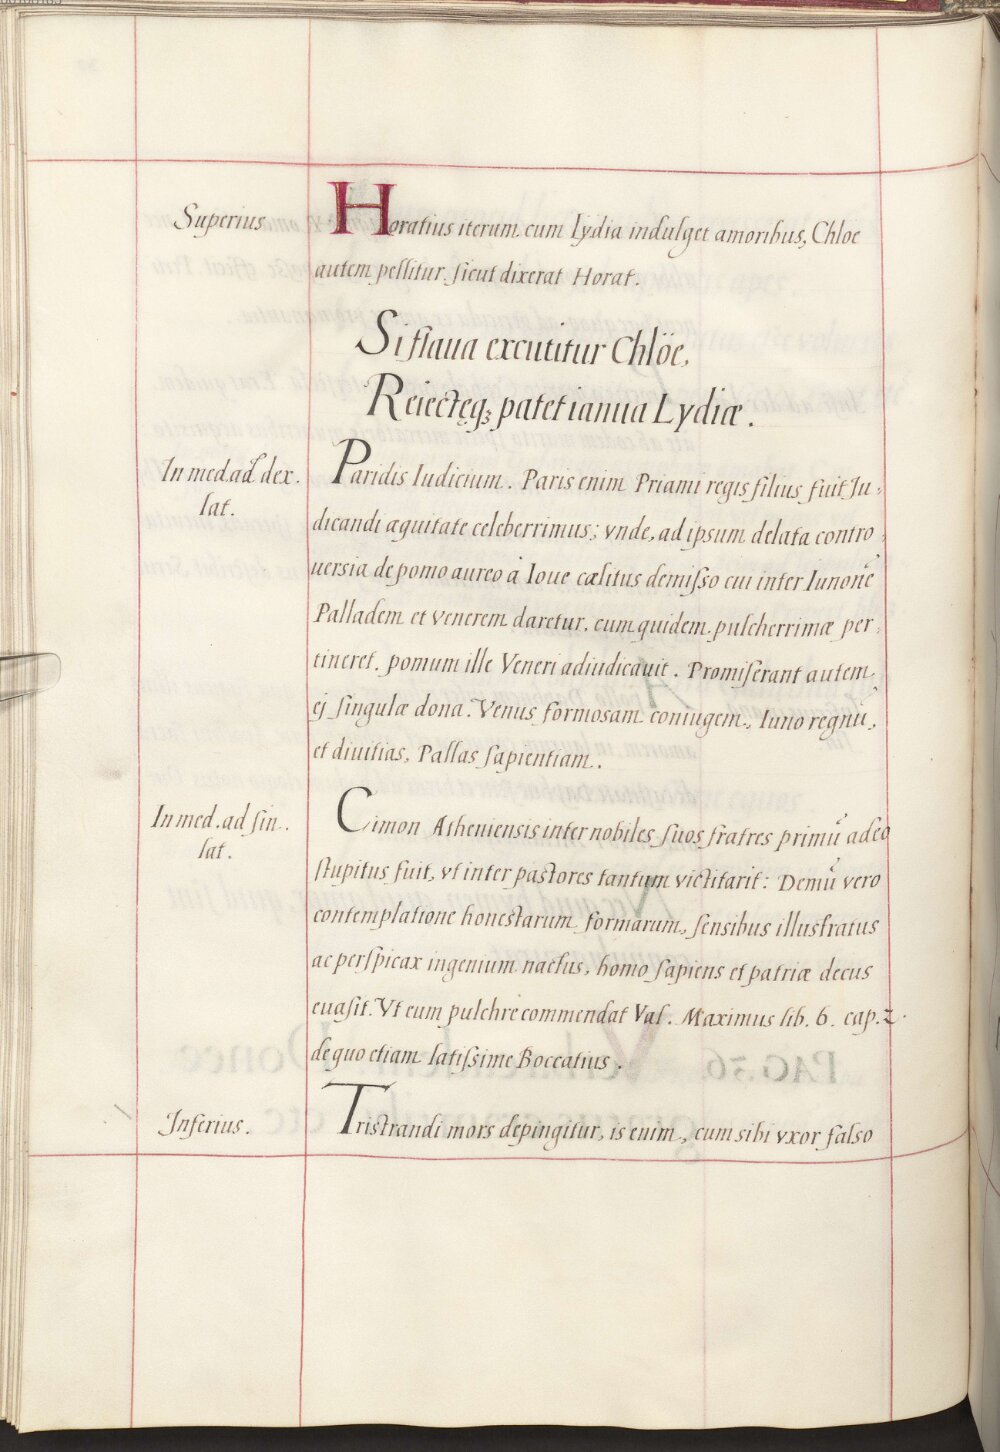 Superius
Horatius iterum cum Lydia indulget amoribus, Chloe
autem pellitur. sicut dixerat Horat.
Si flaua excutitur Chlöe,
Reiectęq; patet ianua Lydiæ.
In med. ad dex.
lat.
Paridis Iudicium. Paris enim Priami regis filius fuit Iu-
dicandi æquitate celeberrimus; vnde, ad ipsum delata contro
uersia de pomo aureo à Ioue cælitus demisso cui inter Iunonē
Palladem et venerem daretur, cum quidem pulcherrimæ per-
tineret. pomum ille Veneri adiudicauit. Promiserant autem
ej singulæ dona. Venus formosam coniugem, Iuno regnū,
et diuitias, Pallas sapientiam.
In med. ad sin.
lat.
Cimon Atheniensis inter nobiles suos fratres primū adeo
stupitus fuit, vt inter pastores tantum victitarit: Demū vero
contemplatione honestarum formarum, sensibus illustratus
ac perspicax ingenium nactus, homo sapiens et patriæ decus
euasit. Vt eum pulchre commendat Val. Maximus lib. 6. cap. 2.
de quo etiam latissime Boccatius.
Inferius.
Tristrandi mors depingitur, is enim, cum sibi vxor falso